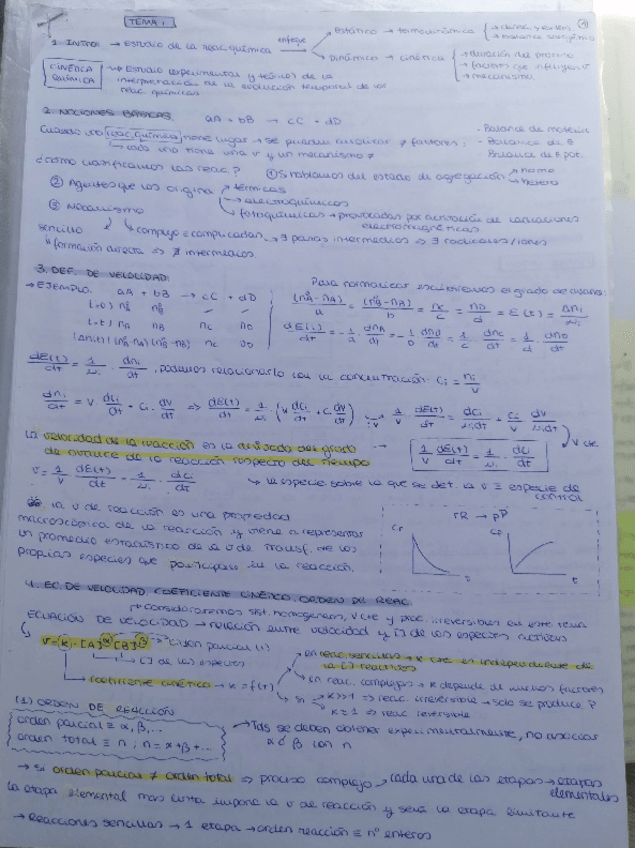 TEMA 1
1. INTRO → Estudio de la reac. química enfoque
Estático → termodinámica
balance energético
Dinámico → cinética
duración del proceso
factores que influyen v
mecanismo
CINÉTICA QUÍMICA → Estudio experimental y teórico de la
interpretación de la evolución temporal de las
reac. químicas
2. NOCIONES BÁSICAS. aA + bB → cC + dD
Cuando una reac. química tiene lugar → se pueden analizar ≠ factores:
- Balance de materia
- Balance de E
- Balance de E pot.
cada una tiene una v y un mecanismo ≠
¿Cómo clasificamos las reac.? ① Si hablamos del estado de agregación
homo
hetero
② Agentes que las origina
térmicas
electroquímicas
fotoquímicas → provocadas por activación de radiaciones
electromagnéticas
③ Mecanismo
sencillo
complejo = complicadas → ∃ pasos intermedios → ∃ radicales/iones
formación directa ⇒ ∄ intermedios
3. DEF. DE VELOCIDAD.
→ EJEMPLO. aA + bB → cC + dD
Para normalizar escribiremos el grado de avance:
dE(t)/dt = 1/νi · dni/dt, podemos relacionarlo con la concentración. Ci = ni/V
dni/dt = V dCi/dt + Ci · dV/dt ⇒ dE(t)/dt = 1/νi · (V dCi/dt + Ci dV/dt)
1/V dE(t)/dt = dCi/νi dt + Ci/V dV/νi dt
V cte
La velocidad de la reacción es la derivada del grado
de avance de la reacción respecto del tiempo
1/V dE(t)/dt = 1/νi · dCi/dt
v = 1/V dE(t)/dt = 1/νi · dCi/dt
la especie sobre la que se det. la v ≡ especie de
control
la v de reacción es una propiedad
microscópica de la reacción y viene a representar
un promedio estadístico de la v de transf. de las
propias especies que participan en la reacción.
rR → pP
t
t
4. EC. DE VELOCIDAD, COEFICIENTE CINÉTICO, ORDEN DE REAC.
consideraremos sist. homogéneos, V cte y proc. irreversibles en este tema
ECUACIÓN DE VELOCIDAD → relación entre velocidad y [] de las especies activas
orden parcial (1)
[] de las especies
coeficiente cinético → k = f(T)
en reac. sencillas → k cte es independiente de
la [] reactivos
en reac. complejas → k depende de muchos factores
si k>>1 ⇒ reac. irreversible → solo se produce P
k≈1 ⇒ reac. reversible
(1) ORDEN DE REACCIÓN
orden parcial ≡ α, β, ...
orden total ≡ n; n = α+β+...
Tds se deben obtener experimentalmente, no asociar
α y β con n
→ Si orden parcial ≠ orden total ⇒ proceso complejo, cada una de las etapas → etapas
elementales
La etapa elemental más lenta impone la v de reacción y será la etapa limitante
→ Reacciones sencillas → 1 etapa → orden reacción = nº enteros